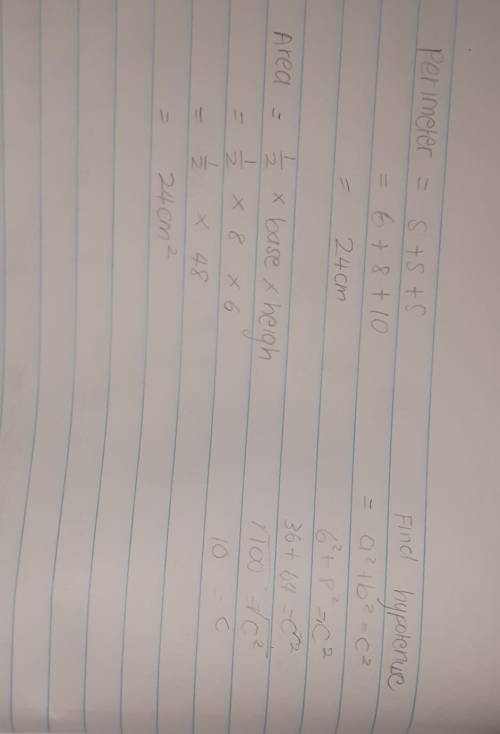 Perimeter = S + S + S
= 6 + 8 + 10
= 24cm
Area = 1/2 × base × heigh
= 1/2 × 8 × 6
= 1/2 × 48
= 24cm²
Find hypotenuc
= a² + b² = c²
6² + 8² = c²
36 + 64 = c²
√100 = √c²
10 = c